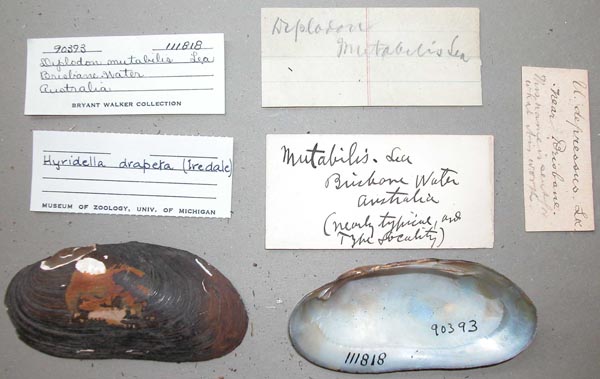 90393 111818
Diplodon mutabilis Lea
Brisbane Water
Australia
BRYANT WALKER COLLECTION
Hyridella drapeta (Iredale)
MUSEUM OF ZOOLOGY, UNIV. OF MICHIGAN
Diplodon
Mutabilis Lea
Mutabilis. Lea
Brisbane Water
Australia
(nearly typical, and
Type locality)
U. depressus. Lx
near Brisbane.
This name is
what
90393
111818